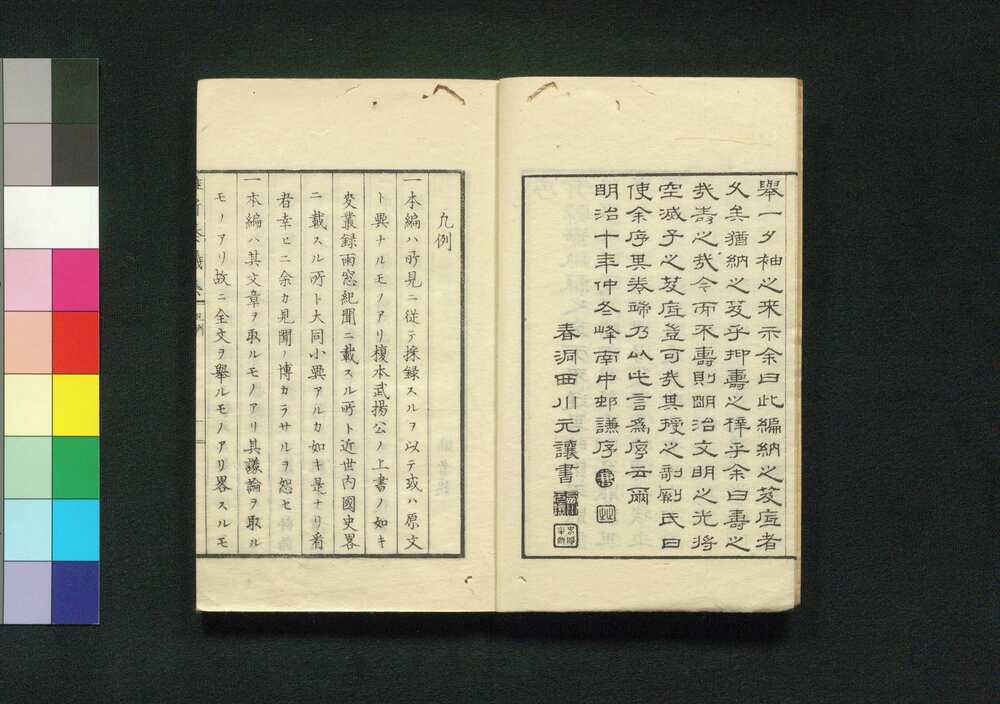 擧一夕袖之来示余曰此編納之芨庭者
久矣猶納之芨乎抑壽之梓乎余曰壽之
哉壽之哉今而不壽則明治文明之光将
空滅于之芨庭豈可哉其授之剞劂氏曰
使余序其巻端乃以此言爲序云爾
明治十年仲冬峰南中邨謙序
春洞西川元讓書
凡例
一本編ハ所見ニ従テ採録スルヲ以テ或ハ原文
ト異ナルモノアリ榎本武揚公ノ上書ノ如キ
変叢録雨窓紀聞ニ載スル所ト近世内國史畧
ニ載スル所ト大同小異アルカ如キ是ナリ看
者幸ヒニ余カ見聞ノ博カラサルヲ恕セ
一本編ハ其文章ヲ取ルモノアリ其議論ヲ取ル
モノアリ故ニ全文ヲ擧ルモノアリ畧スルモ
凡例